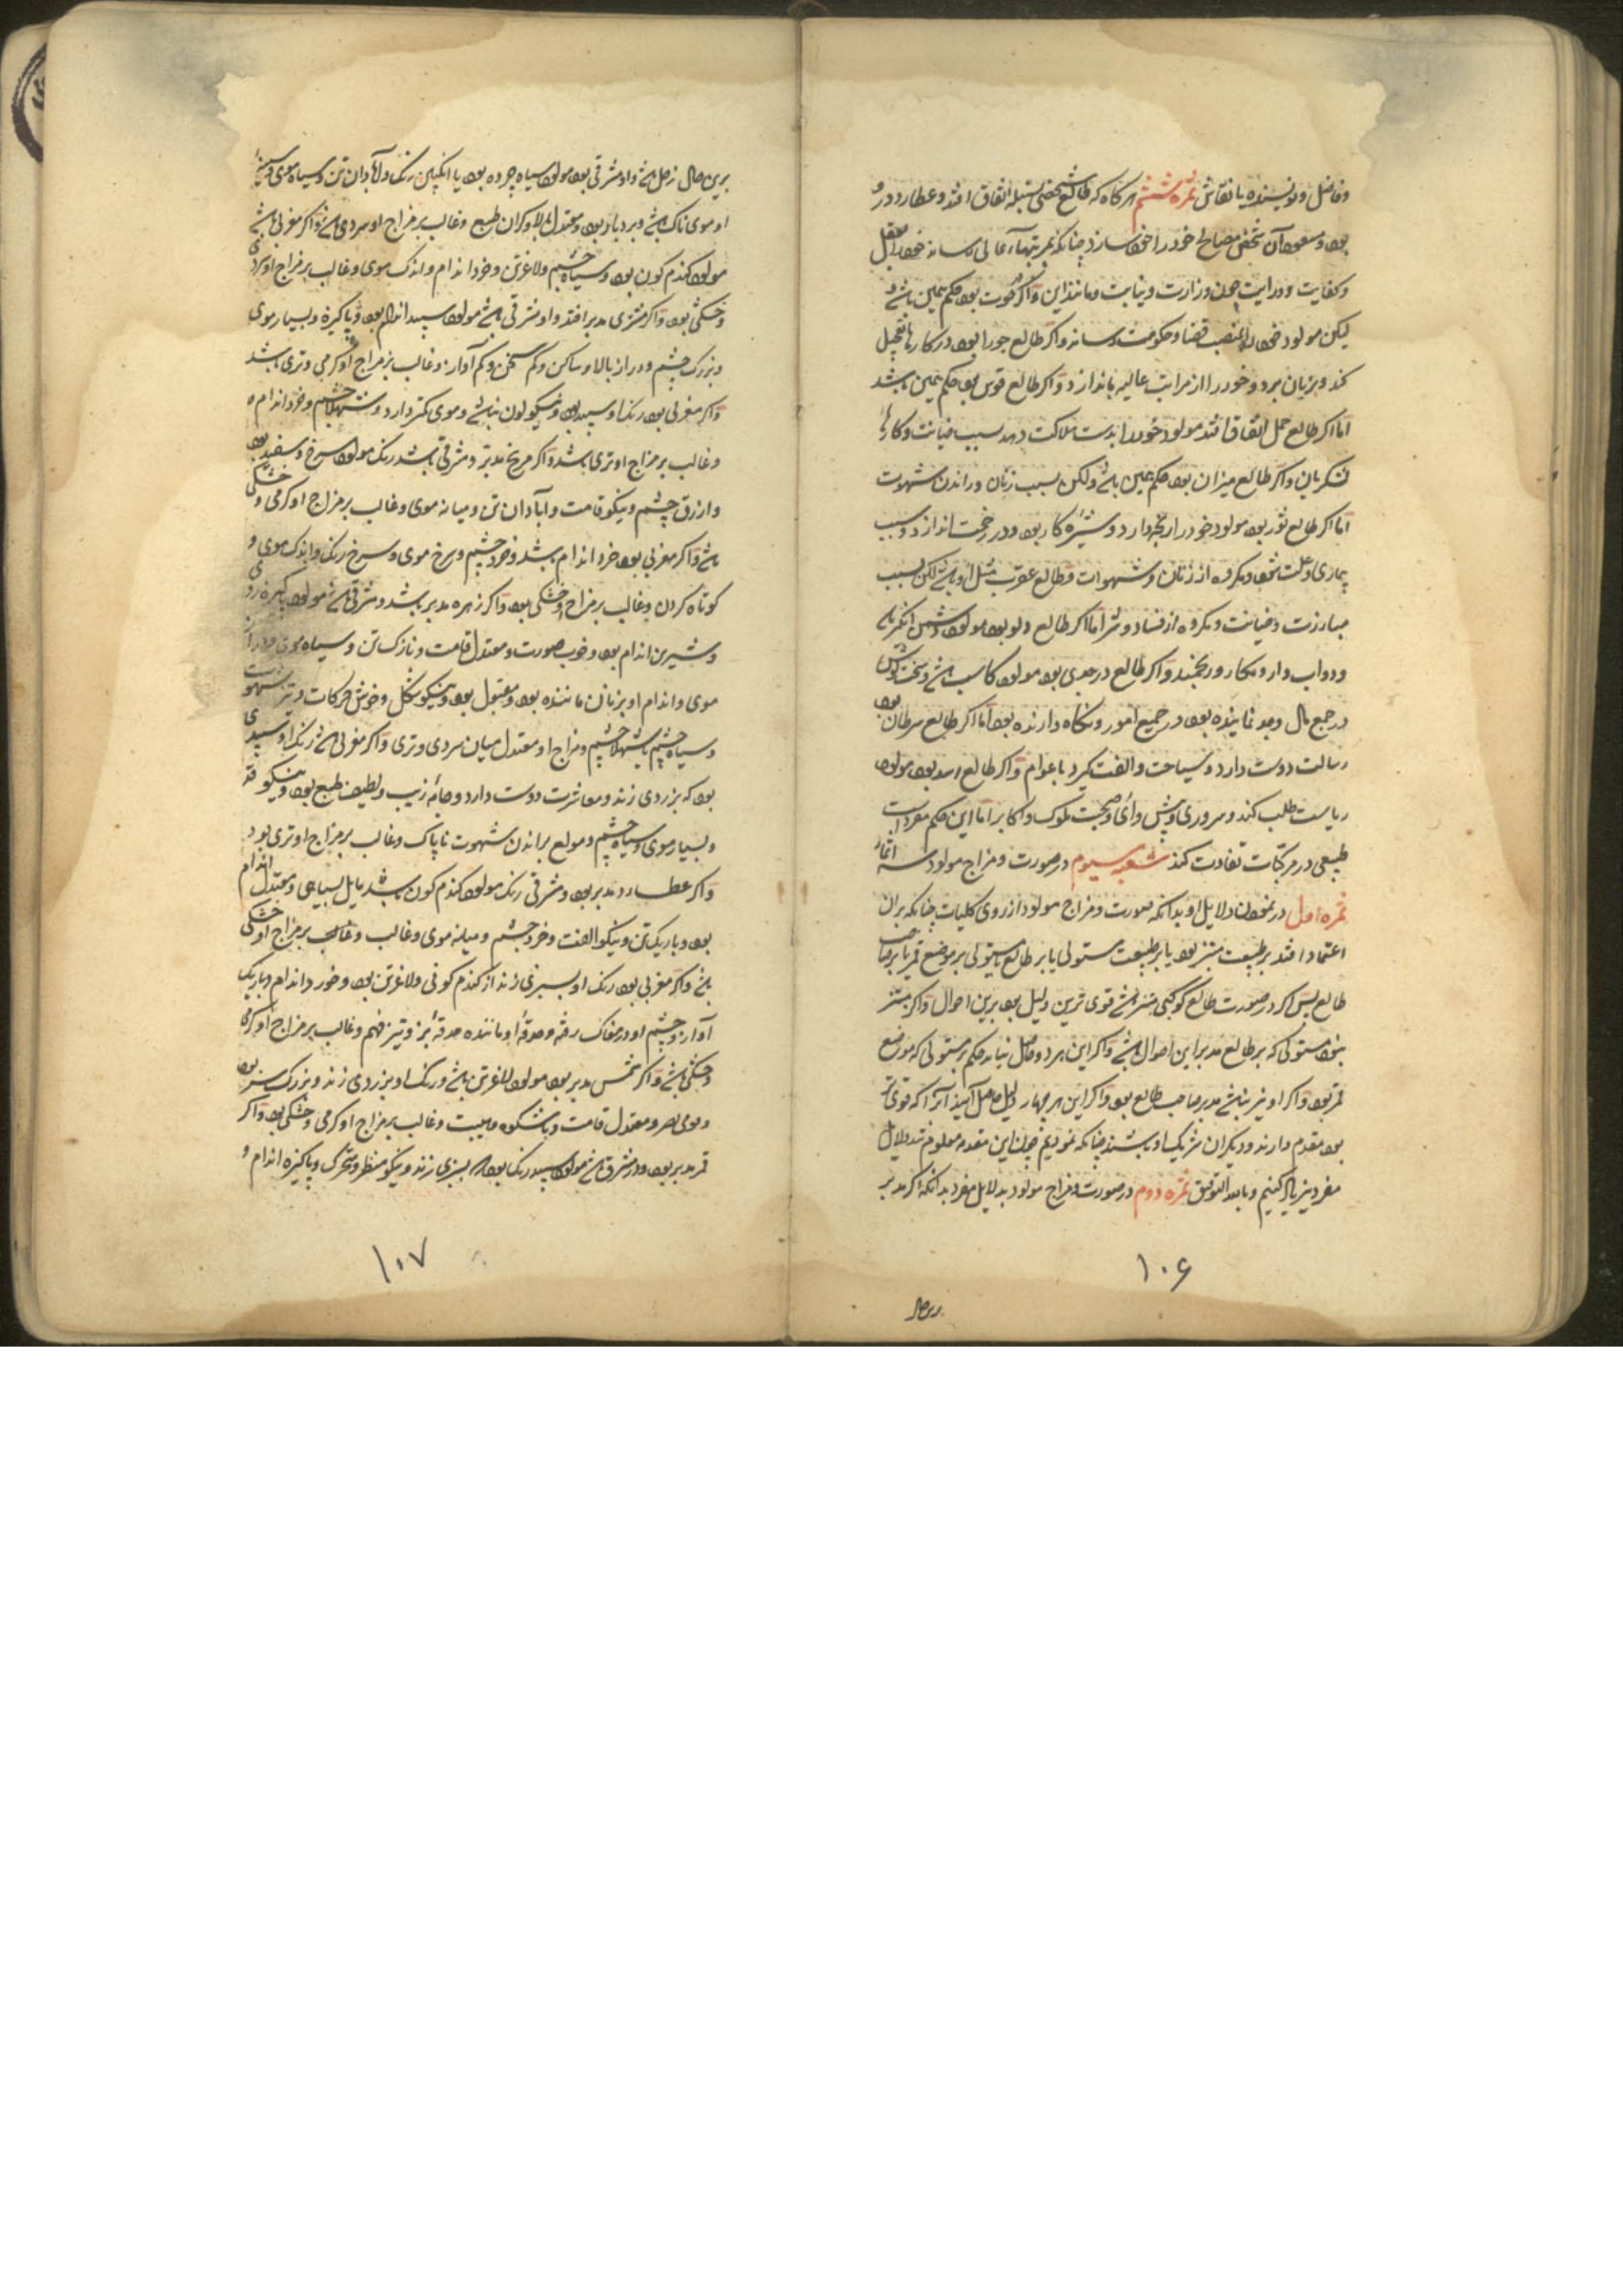 وفاضل ونویسنده یا نقاش ثمره ششم هرکاه که طالع شخصی سنبله اتفاق افتد وعطارد درو
بود ومسعود آن شخص مصالح خود را خود سازد چنانکه بمرتبهاء عالی رساند خود را بعقل
وکفایت ودرایت چون وزارت ونیابت ومانند این واکر حوت بود حکم همین باشد
لیکن مولود خود را بمنصب قضا وحکومت رساند واکر طالع جوزا بود در کارها تعجیل
کند وبزیان برد وخود را از مراتب عالیه باندازد واکر طالع قوس بود حکم همین باشد
اما اکر طالع حمل اتفاق افتد مولود خود را بدست هلاکت دهد بسبب خیانت وکارها
لشکریان واکر طالع میزان بود حکم همین باشد ولکن بسبب زنان وراندن شهوت
اما اکر طالع ثور بود مولود خود را رنجه دارد و کار بود ودر زحمت اندازد وبسبب
بیماری وعلت مکروه از زنان وشهوات وطالع عقرب مثل او باشد لکن بسبب
مبارزت وخیانت ومکروه از فساد وشر اما اکر طالع دلو بود مولود
ودواب دار ومکار ور واکر طالع در جدی بود مولود کاسب باشد وسخت کوش
در جمع مال وجد نماینده بود در جمیع امور ونکاه دارنده بود اما اکر طالع سرطان بود
رسالت دوست دارد وسیاحت والفت کیرد با عوام واکر طالع اسد بود مولود
ریاست طلب کند وسروری وصحبت ملوک واکابر اما این حکم مفرداست
طبیعی در مرکبات تفاوت کند شعبه سیوم در صورت ومزاج مولود سه اثمار
ثمره اول در نمودن دلایل او بدانکه صورت ومزاج مولود از روی کلیات چنانکه بران
اعتماد افتد بر طبیعت مبتز بود یا بر طبیعت مستولی یا بر طالع یا مستولی بر موضع قمر یا بر صاحب
طالع پس اکر در صورت طالع کوکبی مبتز باشد قوی ترین دلیل بود برین احوال واکر مبتز
نبود مستولی که بر طالع مدبر این احوال باشد واکر این هر دو حاصل نیاید حکم بر مستولی که موضع
قمر بود واکر او نیز نباشد مدبر صاحب طالع بود واکر این هر چهار دلیل حاصل آید آنرا که قوی تر
بود مقدم دارند ودیکران شریک او باشند چنانکه نمودیم چون این مقدمه معلوم شد دلایل
مفرد نیز یاد کنیم وبالله التوفیق ثمره دوم در صورت ومزاج مولود بدلایل مفرد بدانکه اکر مدبر
۱۰۶
برین حال
برین حال زحل باشد واو مشرقی بود مولود سیاه چرده بود یا انکبین رنک وآبادان تن وسیاه موی وسینه
او موی ناک باشد وبردبار بود ومعتدل بالا وکران طبع وغالب بر مزاج او سردی باشد واکر مغربی باشد
مولود کندم کون بود وسیاه چشم ولاغر تن وخرد اندام واندک موی وغالب بر مزاج او سردی
وخشکی بود واکر مشتری مدبر افتد واو مشرقی باشد مولود سپید اندام بود وپاکیزه وبسیار موی
وبزرک چشم ودراز بالا وساکن وکم سخن وکم آواز وغالب بر مزاج او کرمی وتری باشد
واکر مغربی بود رنک او سپید بود ونیکو لون نباشد وموی کمتر دارد وشهلا چشم وخرد اندام
وغالب بر مزاج او تری باشد واکر مریخ مدبر ومشرقی باشد رنک مولود سرخ وسفید بود
وازرق چشم ونیکو قامت وآبادان تن ومیانه موی وغالب بر مزاج او کرمی وخشکی
باشد واکر مغربی بود خرد اندام باشد وخرد چشم وسرخ موی وسرخ رنک واندک موی و
کوتاه کردن وغالب بر مزاج او خشکی بود واکر زهره مدبر باشد ومشرقی باشد مولود پاکیزه روی
وشیرین اندام بود وخوب صورت ومعتدل قامت ونازک تن وسیاه موی ودراز
موی واندام او بزنان ماننده بود ومقبول بود ونیکو شکل وخوش حرکات وتیز شهوت
وسیاه چشم یا شهلا چشم ومزاج او معتدل میان سردی وتری واکر مغربی باشد رنک او سپیدی
بود که بزردی زند ومعاشرت دوست دارد وجامه زیب ولطیف طبع بود ونیکو قد
وبسیار موی وسیاه چشم ومولع براندن شهوت ناپاک وغالب بر مزاج او تری بود
واکر عطارد مدبر بود ومشرقی رنک مولود کندم کون باشد مایل بسیاهی ومعتدل اندام
بود وباریک تن ونیکو الفت وخرد چشم ومیانه موی وغالب بر مزاج او خشکی
باشد واکر مغربی بود رنک او بسبزی زند از کندم کونی ولاغر تن بود وخورد اندام وباریک
آواز وچشم او در مغاک رفته وحدقه او ماننده حدقه بز وتیز فهم وغالب بر مزاج او کرمی
وخشکی باشد واکر شمس مدبر بود مولود لاغر تن باشد ورنک او بزردی زند وبزرک سر بود
ومعتدل قامت وباشکوه وهیبت وغالب بر مزاج او کرمی وخشکی بود واکر
قمر مدبر بود ودر مشرق باشد مولود سپید رنک بود که بسبزی زند ونیکو منظر ومتحرک وپاکیزه اندام و
۱۰۷